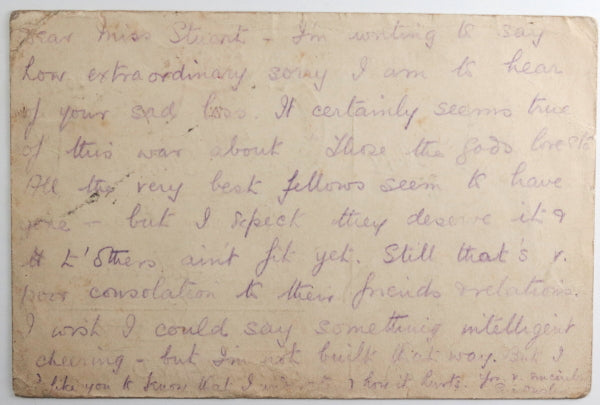 Dear Miss Stuart - I'm writing to say
how extraordinary sorry I am to hear
of your sad loss. It certainly seems true
of this war about Those the Gods love etc
All the very best fellows seem to have
gone - but I xpect they deserve it &
t'others ain't fit yet. Still that's v.
poor consolation to their friends & relations.
I wish I could say something intelligent
cheering - but I'm not built that way. But I
like you to know that I & how it hurts. Yrs v. sincerely